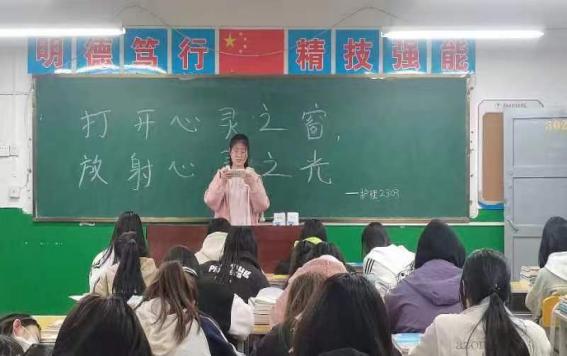 明德笃行 精技强能
打开心灵之窗,
放射心灵之光
——护理2309
302